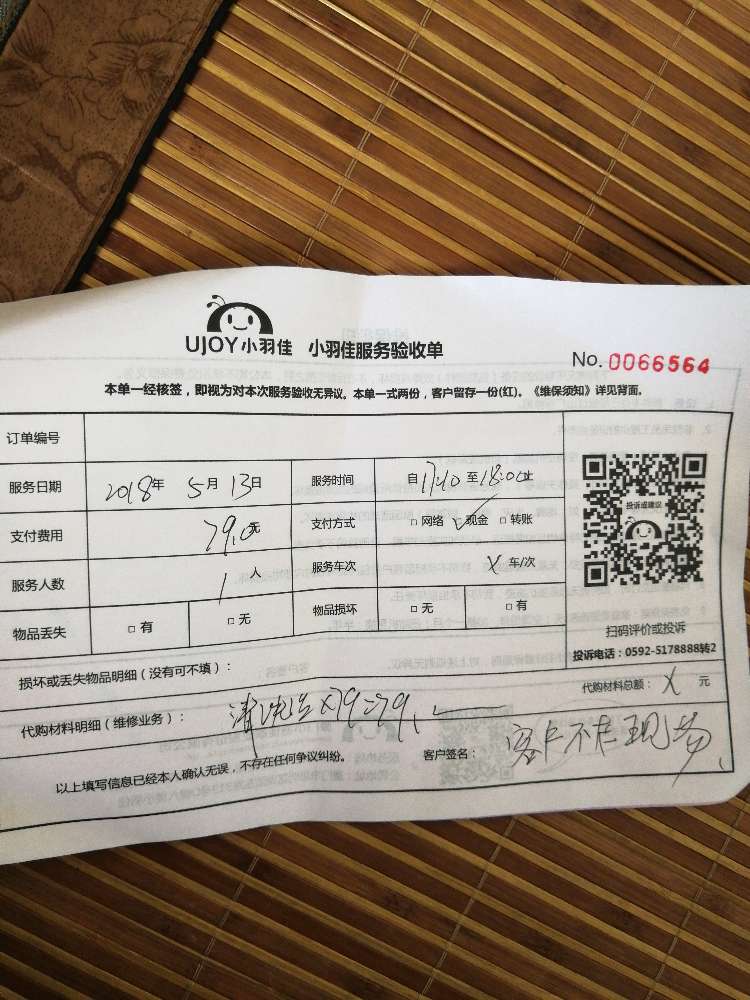 UJOY小羽佳 小羽佳服务验收单
No. 0066564
本单一经核签，即视为对本次服务验收无异议。本单一式两份，客户留存一份(红)。《维保须知》详见背面。
订单编号
服务日期 2018年 5月 13日 服务时间 自17:10至18:01止
支付费用 79.0元 支付方式 □网络 ☑现金 □转账
服务人数 1人 服务车次 X 车/次
物品丢失 □有 □无 物品损坏 □无 □有
投诉或建议
扫码评价或投诉
投诉电话：0592-5178888转2
损坏或丢失物品明细（没有可不填）：
代购材料总额： X 元
代购材料明细（维修业务）： 清洗 79=79.
客户签名： 客户不在现场、
以上填写信息已经本人确认无误，不存在任何争议纠纷。